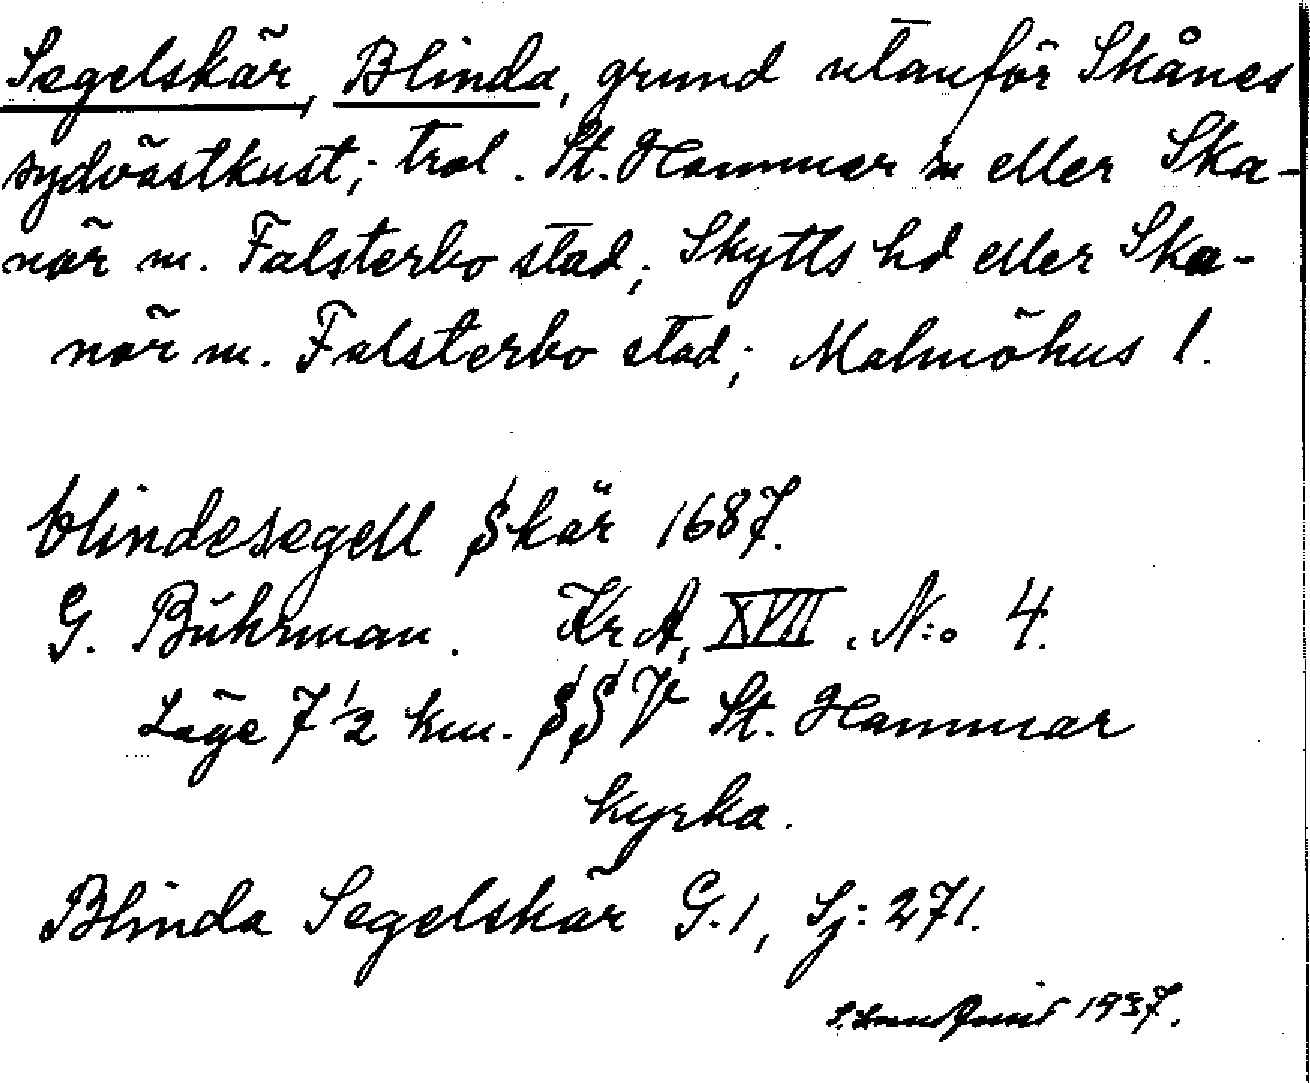 Segelskär, Blinda, grund utanför Skånes
sydvästkust; trol. St. Hammar sn eller Ska-
nör m. Falsterbo stad; Skytts hd eller Ska-
nör m. Falsterbo stad; Malmöhus l.
blindesegell skär 1687.
G. Buhrman. KrA, XVII. N:o 4.
Läge 7 1/2 km. SSV St. Hammar
kyrka.
Blinda Segelskär G. 1, Sj: 271.
1937.